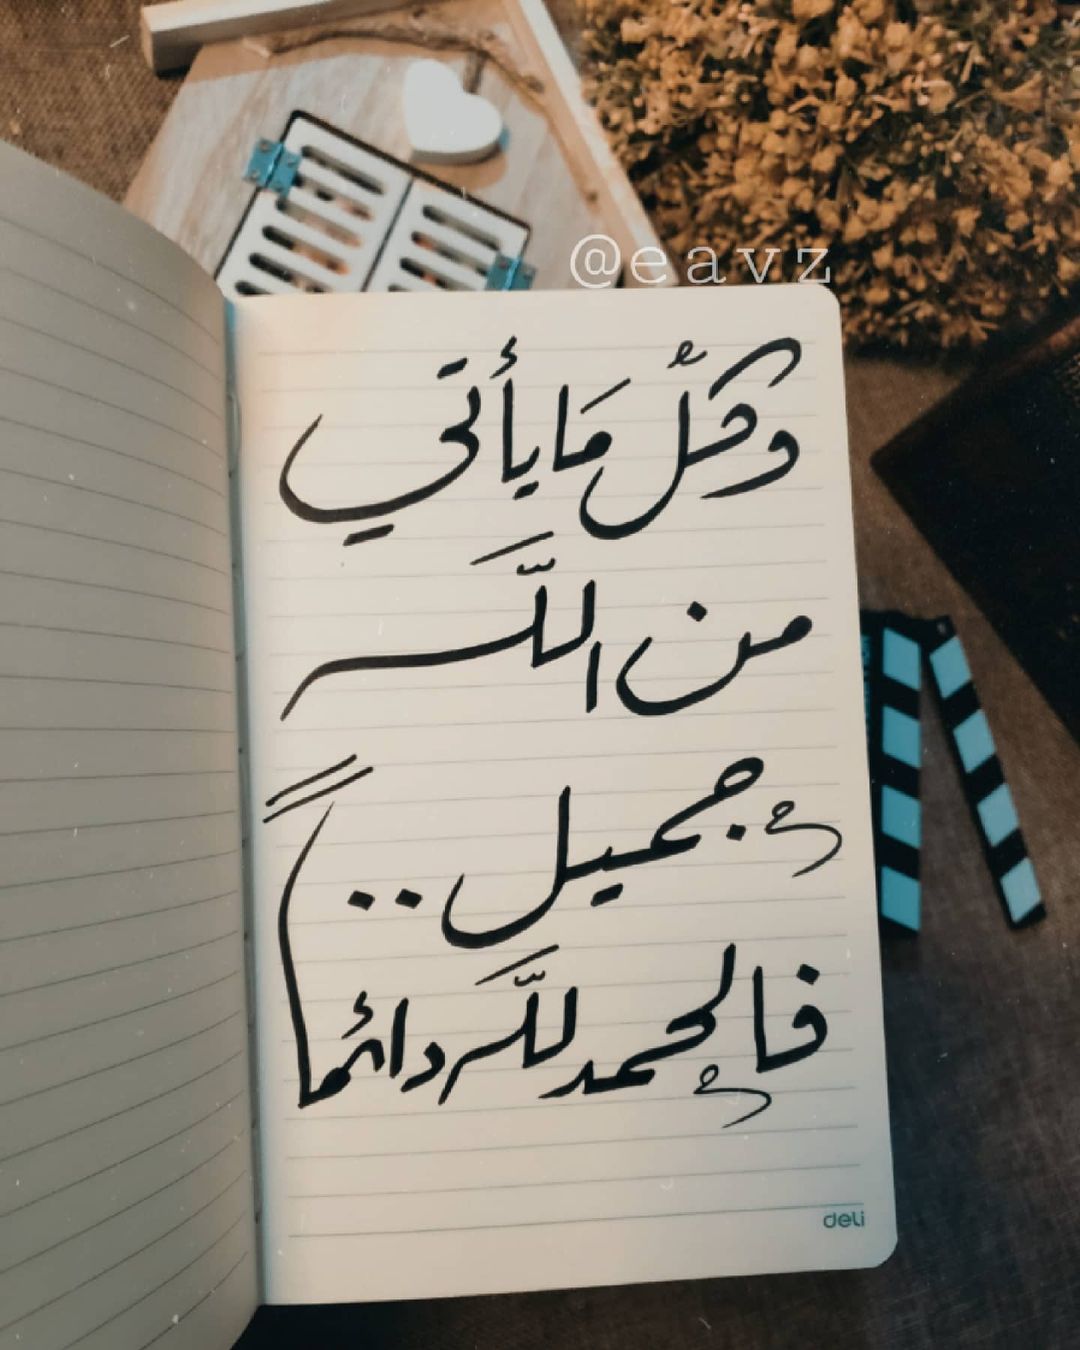 @eavz
وكلْ مَا يأتي
من اللَّه
جميل ..
فالحمد للَّه دائماً
deli